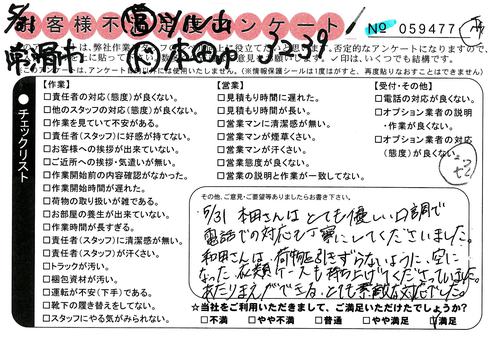 5/31
お客様不満足度アンケート
No 059477
3239
チェックリスト
【作業】
□責任者の対応(態度)が良くない。
□他のスタッフの対応(態度)が良くない。
□作業を見ていて不安がある。
□責任者(スタッフ)に好感が持てない。
□お客様への挨拶が出来ていない。
□ご近所への挨拶・気遣いが無い。
□作業開始前の内容確認がなかった。
□作業開始時間が遅れた。
□荷物の取り扱いが雑である。
□お部屋の養生が出来ていない。
□作業時間が長すぎる。
□責任者(スタッフ)に清潔感が無い。
□責任者(スタッフ)が汗くさい。
□トラックが汚い。
□梱包資材が汚い。
□運転が不安(下手)である。
□靴下の履き替えをしてない。
□スタッフにやる気がみられない。
【営業】
□見積もり時間に遅れた。
□見積もり時間が長い。
□営業マンに清潔感が無い。
□営業マンが煙草くさい。
□営業マンが汗くさい。
□営業態度が良くない。
□営業の説明と作業が一致してない。
【受付・その他】
□電話の対応が良くない。
□オプション業者の説明
・作業が良くない。
□オプション業者の対応
(態度)が良くない。
その他、ご意見・ご要望等ありましたらお書き下さい。
5/31 本田さんは とても優しい口調で
電話での対応も丁寧にしてくださいました。
和田さんは、荷物を引きずらないように、空に
なった衣類ケースも持ち上げてくださっていました。
あたりまえができる、とても素敵な対応でした。
☆当社をご利用いただきまして、ご満足いただけたでしょうか?
□不満 □やや不満 □普通 □やや満足 □満足